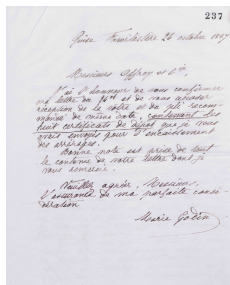 237
Guise Familistère 26 octobre 1897
Messieurs Affroy et Cie,
J'ai l'honneur de vous confirmer
ma lettre du 14 et de vous accuser
réception de la votre et du pli recom-
mandé de même date, contenant les
huit certificats de dépôt que je vous
avais envoyés pour l'encaissement
des arrérages.
Bonne note est prise de tout
le contenu de votre lettre dont je
vous remercie.
Veuillez agréer, Messieurs,
l'assurance de ma parfaite consi-
dération
Marie Godin